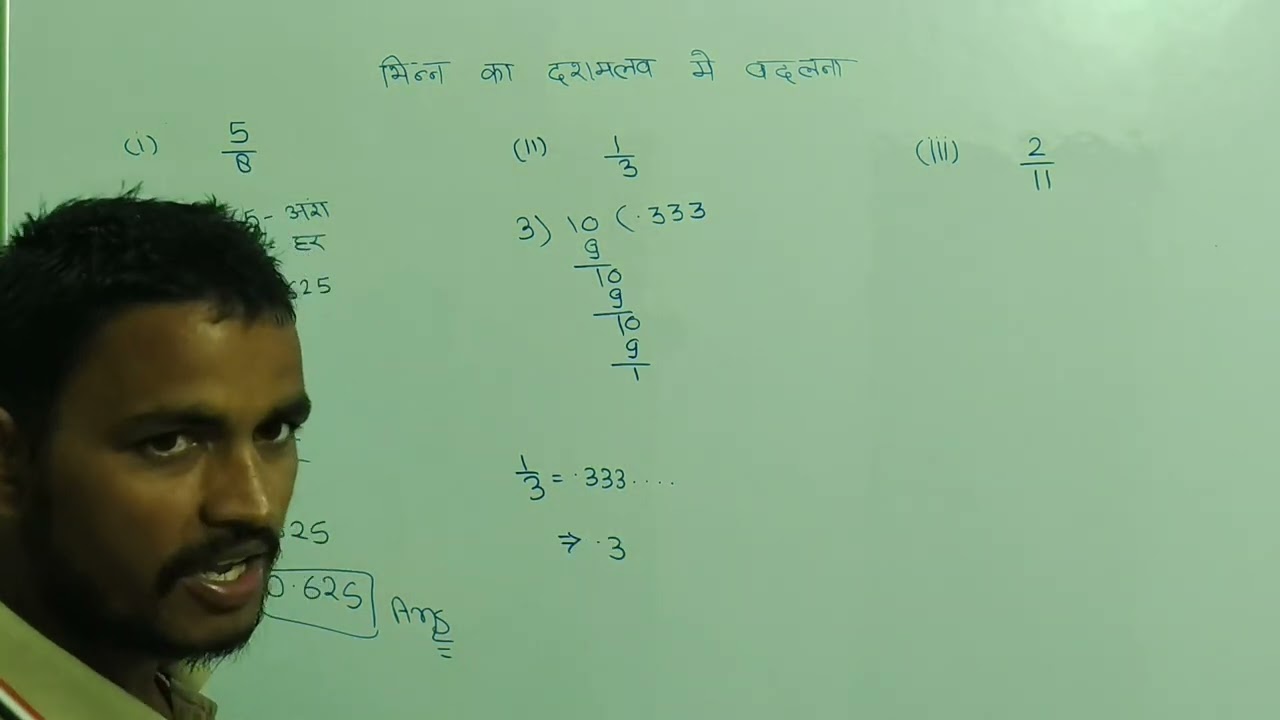 भिन्न का दशमलव मे बदलना
(i) 5/8
5- अंश
हर
625
25
0.625 Ans
(ii) 1/3
3) 10 ( .333
9
10
9
10
9
1
1/3 = .333....
⇒ .3
(iii) 2/11